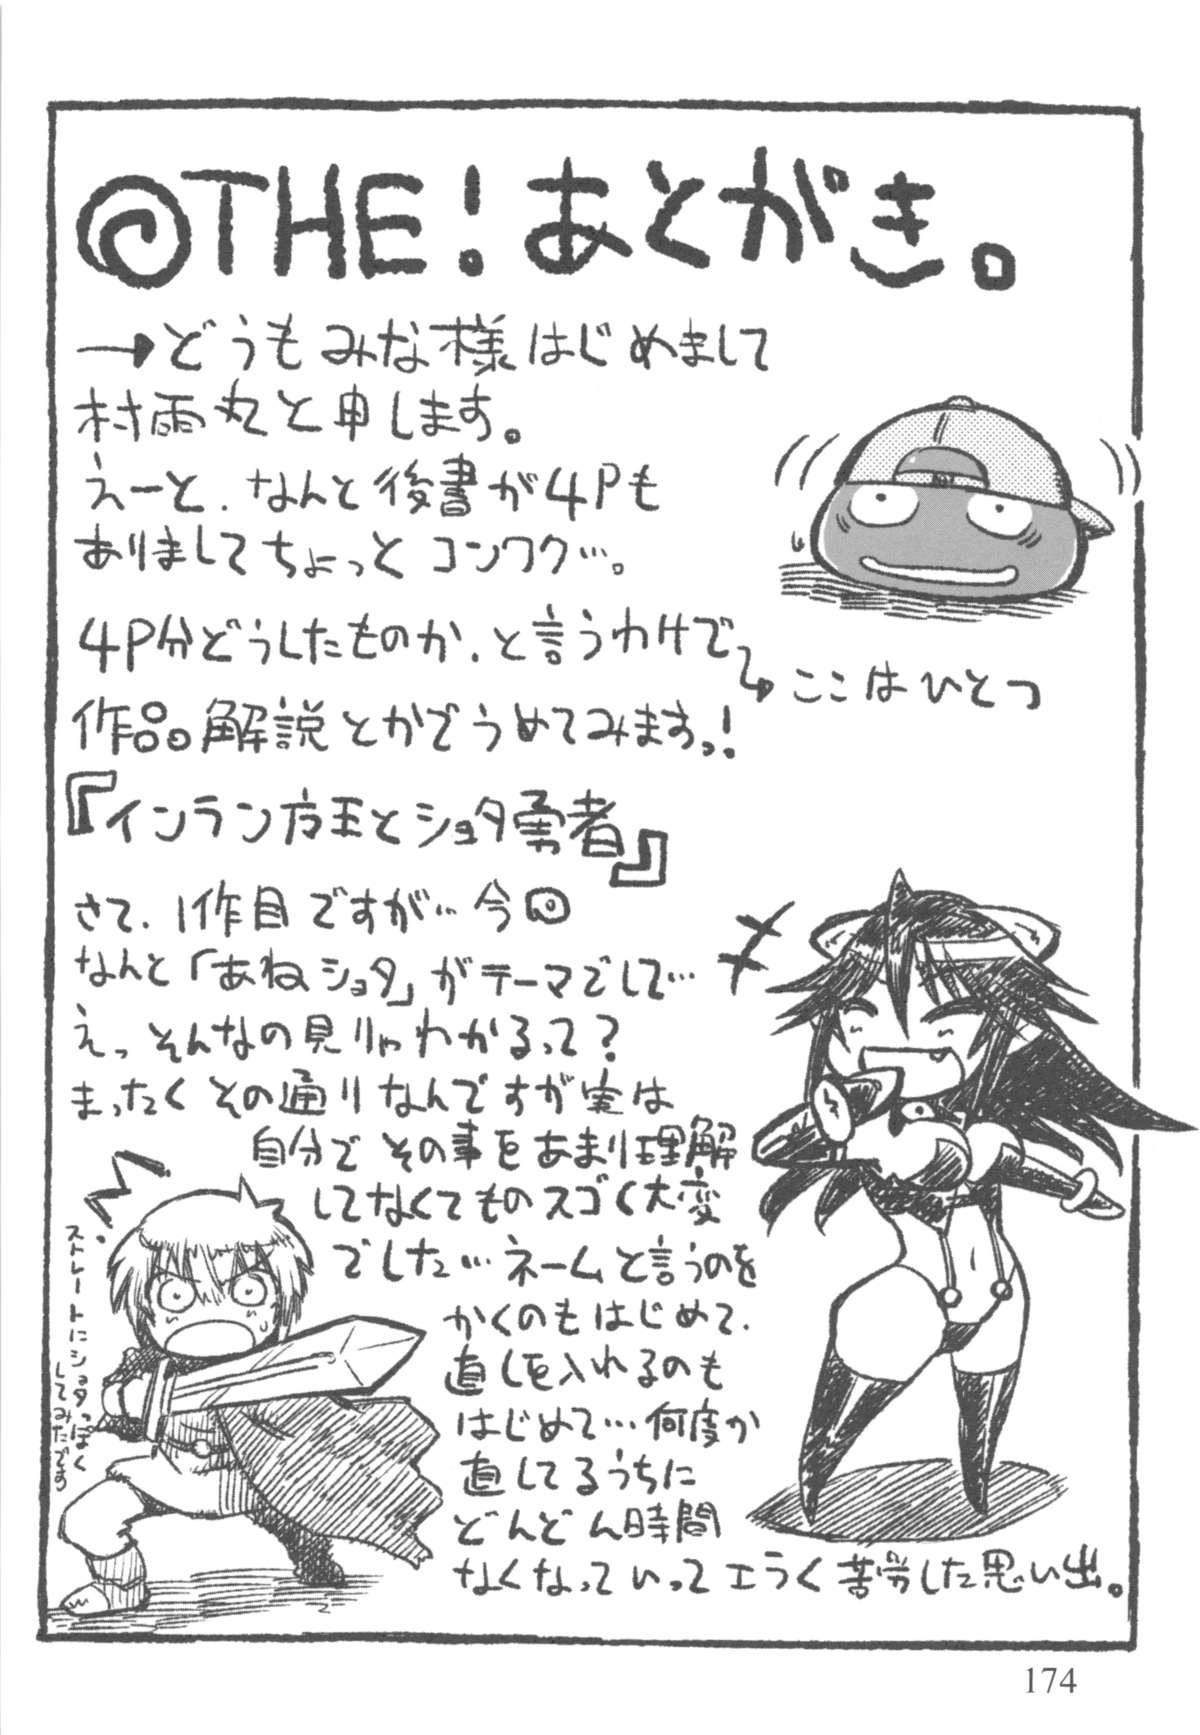 @THE!あとがき。
→どうもみな様はじめまして
村雨丸と申します。
えーと、なんと後書が4Pも
ありましてちょっとコンワク…。
4P分どうしたものか、と言うわけで
→ここはひとつ
作品解説とかでうめてみますっ!
『インラン方王とショタ勇者』
さて、1作目ですが…今回
なんと「あねショタ」がテーマでして…
えっそんなの見りゃわかるって?
まったくその通りなんですが実は
自分でその事をあまり理解
してなくてものスゴく大変
でした…ネームと言うのを
かくのもはじめて、
直しを入れるのも
はじめて…何度か
直してるうちに
どんどん時間
なくなっていってエラく苦労した思い出。
ストレートにショタっぽく
してみたです
174